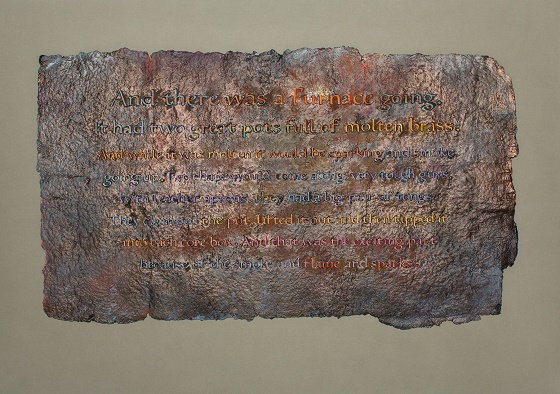 And there was a furnace going.
It had two great pots full of molten brass.
And while it was molten it would be sparking and
going up. Two chaps would come along, very tough guys,
with leather aprons. They had a big pair of tongs.
They the pot, lifted it out and then tipped it
into each core box. And that was the exciting part
because of the smoke and flame and sparks.